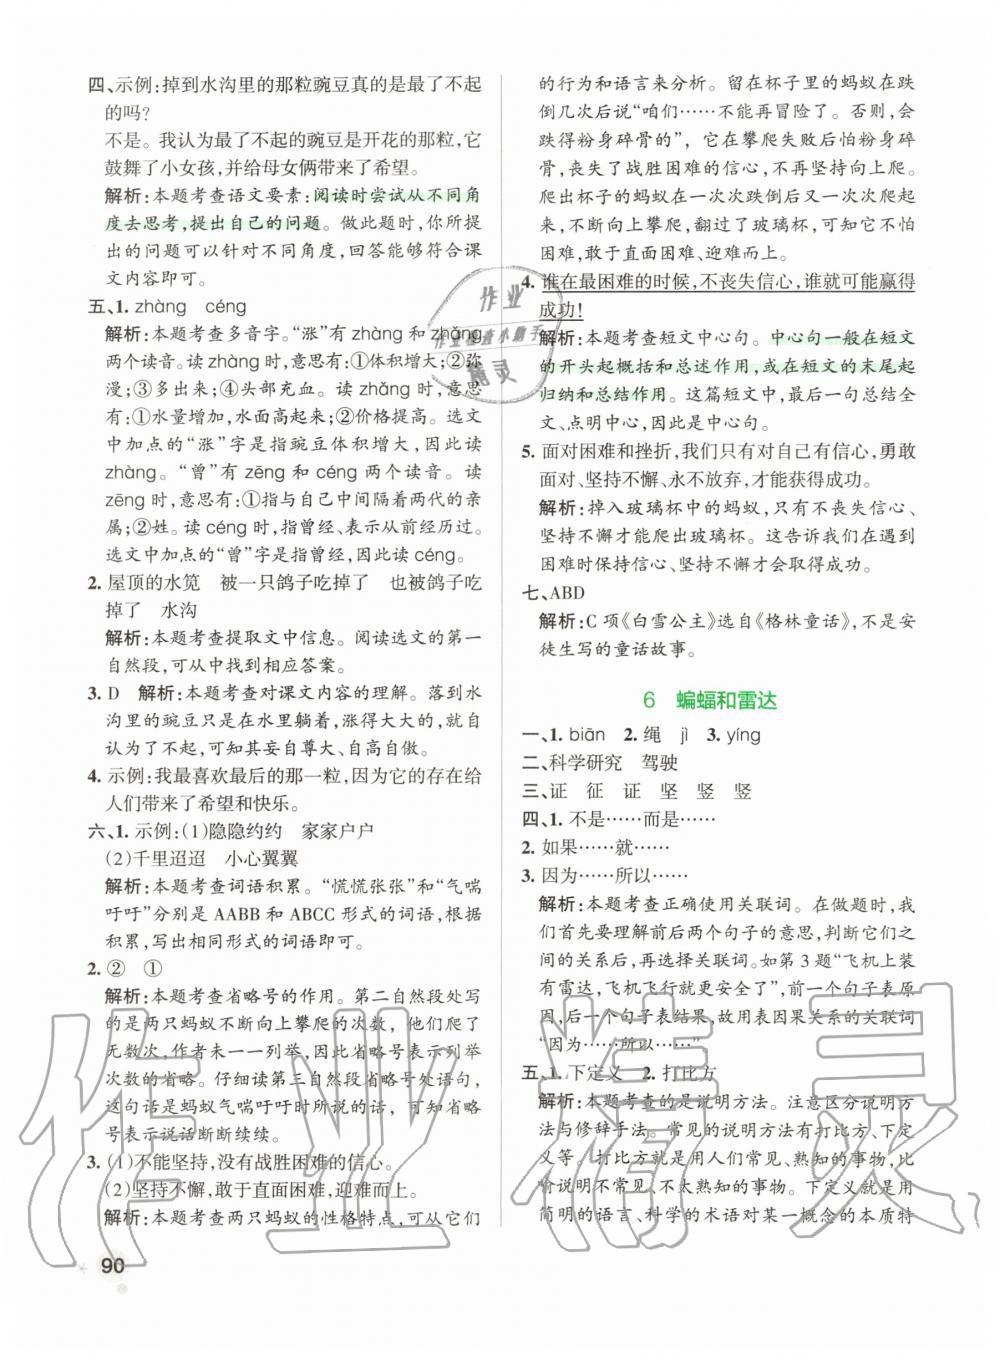 四、示例:掉到水沟里的那粒豌豆真的是最了不起
的吗?
不是。我认为最了不起的豌豆是开花的那粒,它
鼓舞了小女孩,并给母女俩带来了希望。
解析:本题考查语文要素:阅读时尝试从不同角
度去思考,提出自己的问题。做此题时,你所提
出的问题可以针对不同角度,回答能够符合课
文内容即可。
五、1. zhàng céng
解析:本题考查多音字。“涨”有 zhàng 和 zhǎng
两个读音。读 zhàng 时,意思有:①体积增大;②弥
漫;③多出来;④头部充血。读 zhǎng 时,意思
有:①水量增加,水面高起来;②价格提高。选文
中加点的“涨”字是指豌豆体积增大,因此读
zhàng。“曾”有 zēng 和 céng 两个读音。读
zēng 时,意思有:①指与自己中间隔着两代的亲
属;②姓。读 céng 时,指曾经、表示从前经历过。
选文中加点的“曾”字是指曾经,因此读 céng。
2. 屋顶的水笕 被一只鸽子吃掉了 也被鸽子吃
掉了 水沟
解析:本题考查提取文中信息。阅读选文的第一
自然段,可从中找到相应答案。
3. D 解析:本题考查对课文内容的理解。落到水
沟里的豌豆只是在水里躺着,涨得大大的,就自
认为了不起,可知其妄自尊大、自高自傲。
4. 示例:我最喜欢最后的那一粒,因为它的存在给
人们带来了希望和快乐。
六、1. 示例:(1)隐隐约约 家家户户
(2)千里迢迢 小心翼翼
解析:本题考查词语积累。“慌慌张张”和“气喘
吁吁”分别是 AABB 和 ABCC 形式的词语,根据
积累,写出相同形式的词语即可。
2. ② ①
解析:本题考查省略号的作用。第二自然段处写
的是两只蚂蚁不断向上攀爬的次数,他们爬了
无数次,作者未一一列举,因此省略号表示列举
次数的省略。仔细读第三自然段省略号处语句,
这句话是蚂蚁气喘吁吁时所说的话,可知省略
号表示说话断断续续。
3. (1)不能坚持,没有战胜困难的信心。
(2)坚持不懈,敢于直面困难,迎难而上。
解析:本题考查两只蚂蚁的性格特点,可从它们
90
的行为和语言来分析。留在杯子里的蚂蚁在跌
倒几次后说“咱们……不能再冒险了。否则,会
跌得粉身碎骨的”,它在攀爬失败后怕粉身碎
骨,丧失了战胜困难的信心,不再坚持向上爬。
爬出杯子的蚂蚁在一次次跌倒后,一次次站起
来,不断向上攀爬,翻过了玻璃杯,可知它不怕
困难,敢于直面困难、迎难而上。
4. 谁在最困难的时候,不丧失信心,谁就可能赢得
成功!
解析:本题考查短文中心句。中心句一般在短文
的开头起概括和总述作用,或在短文的末尾起
归纳和总结作用。这篇短文中,最后一句总结全
文、点明中心,因此是中心句。
5. 面对困难和挫折,我们只有对自己有信心,勇敢
面对、坚持不懈、永不放弃,才能获得成功。
解析:掉入玻璃杯中的蚂蚁,只有不丧失信心、
坚持不懈才能爬出玻璃杯。这告诉我们在遇到
困难时保持信心、坚持不懈才能取得成功。
七、ABD
解析:C 项《白雪公主》选自《格林童话》,不是安
徒生写的童话故事。
6 蝙蝠和雷达
一、1. biān 2. 绳 jì 3. yíng
二、科学研究 驾驶
三、证 征 证 坚 竖 竖
四、1. 不是……而是……
2. 如果……就……
3. 因为……所以……
解析:本题考查正确使用关联词。在做题时,我
们首先要理解前后两个句子的意思,判断它们之
间的关系后,再选择关联词。如第 3 题“飞机上装
有雷达,飞机飞行就更安全了”,前一个句子表原
因,后一个句子表结果,故用表因果关系的关联词
“因为……所以……”
五、1. 下定义 2. 打比方
解析:本题考查的是说明方法。注意区分说明方
法与修辞手法。常见的说明方法有打比方、下定
义等。打比方就是用人们常见、熟知的事物,比
喻说明不常见、不太熟知的事物。下定义就是用
简明的语言、科学的术语对某一概念的本质特
作业
作业检查小助手
精灵
作业精灵